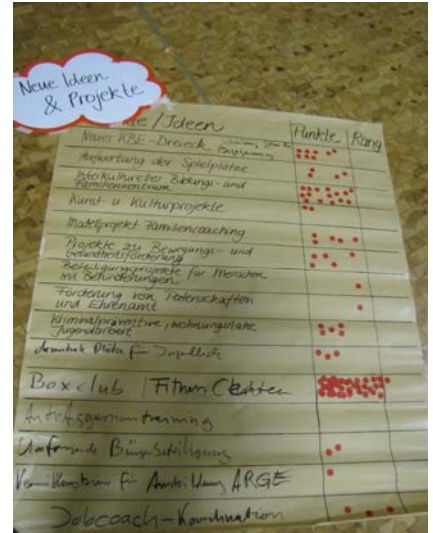 Neue Ideen
& Projekte
/Ideen Punkte Rang
Name KBE-Dreieck
Aufwertung der Spielplätze
Interkulturelles Bildungs- und
Familienzentrum
Kunst- u Kulturprojekte
Modellprojekt Familiencoaching
Projekte zu Bewegungs- und
Gesundheitsförderung
Beteiligungsprojekte für Menschen
mit Behinderungen
Förderung von Patenschaften
und Ehrenamt
Kriminalpräventive, wohnungsnahe
Jugendarbeit
Plätze für Jugendliche
Boxclub / Fitness
Umfassende Bürgerbeteiligung
für Ausbildung ARGE
Jobcoach-Koordination